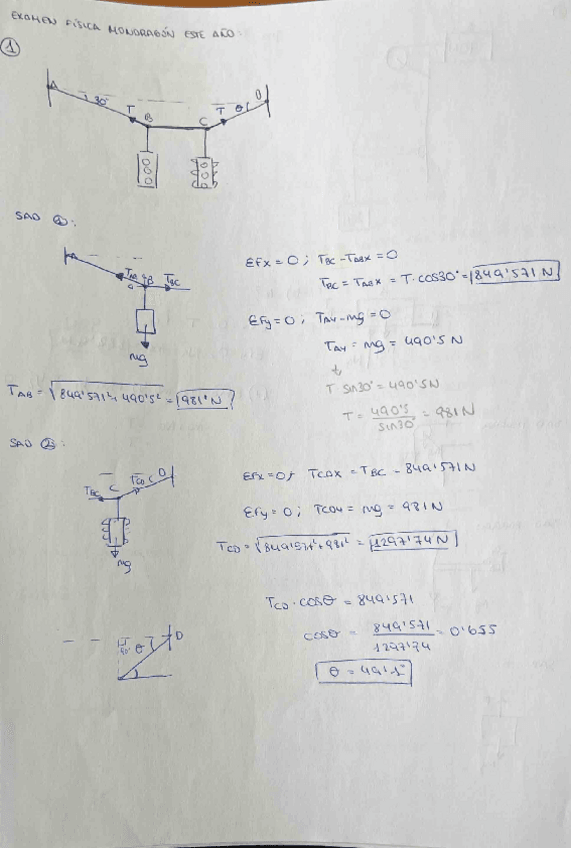 EXAMEN FÍSICA MONDRAGÓN ESTE AÑO:
1
A 30° T B C T θ D
SAD 1:
A TAB B TBC
mg
ΣFx = 0 ; TBC - TABX = 0
TBC = TABX = T · COS30° = 849'571 N
ΣFy = 0 ; TAY - mg = 0
TAY = mg = 490'5 N
T sin30° = 490'5N
T = 490'5 / sin30 = 981N
TAB = √849'571² + 490'5² = 981'N
SAD 2:
TBC C TCD D
mg
ΣFx = 0 ; TCDX = TBC - 849'571N
ΣFy = 0 ; TCDY = mg = 981 N
TCD = √849'571² + 981² = 1297'74 N
TCD · COSθ = 849'571
COSθ = 849'571 / 1297'74 = 0'655
θ = 49'1°
θ D